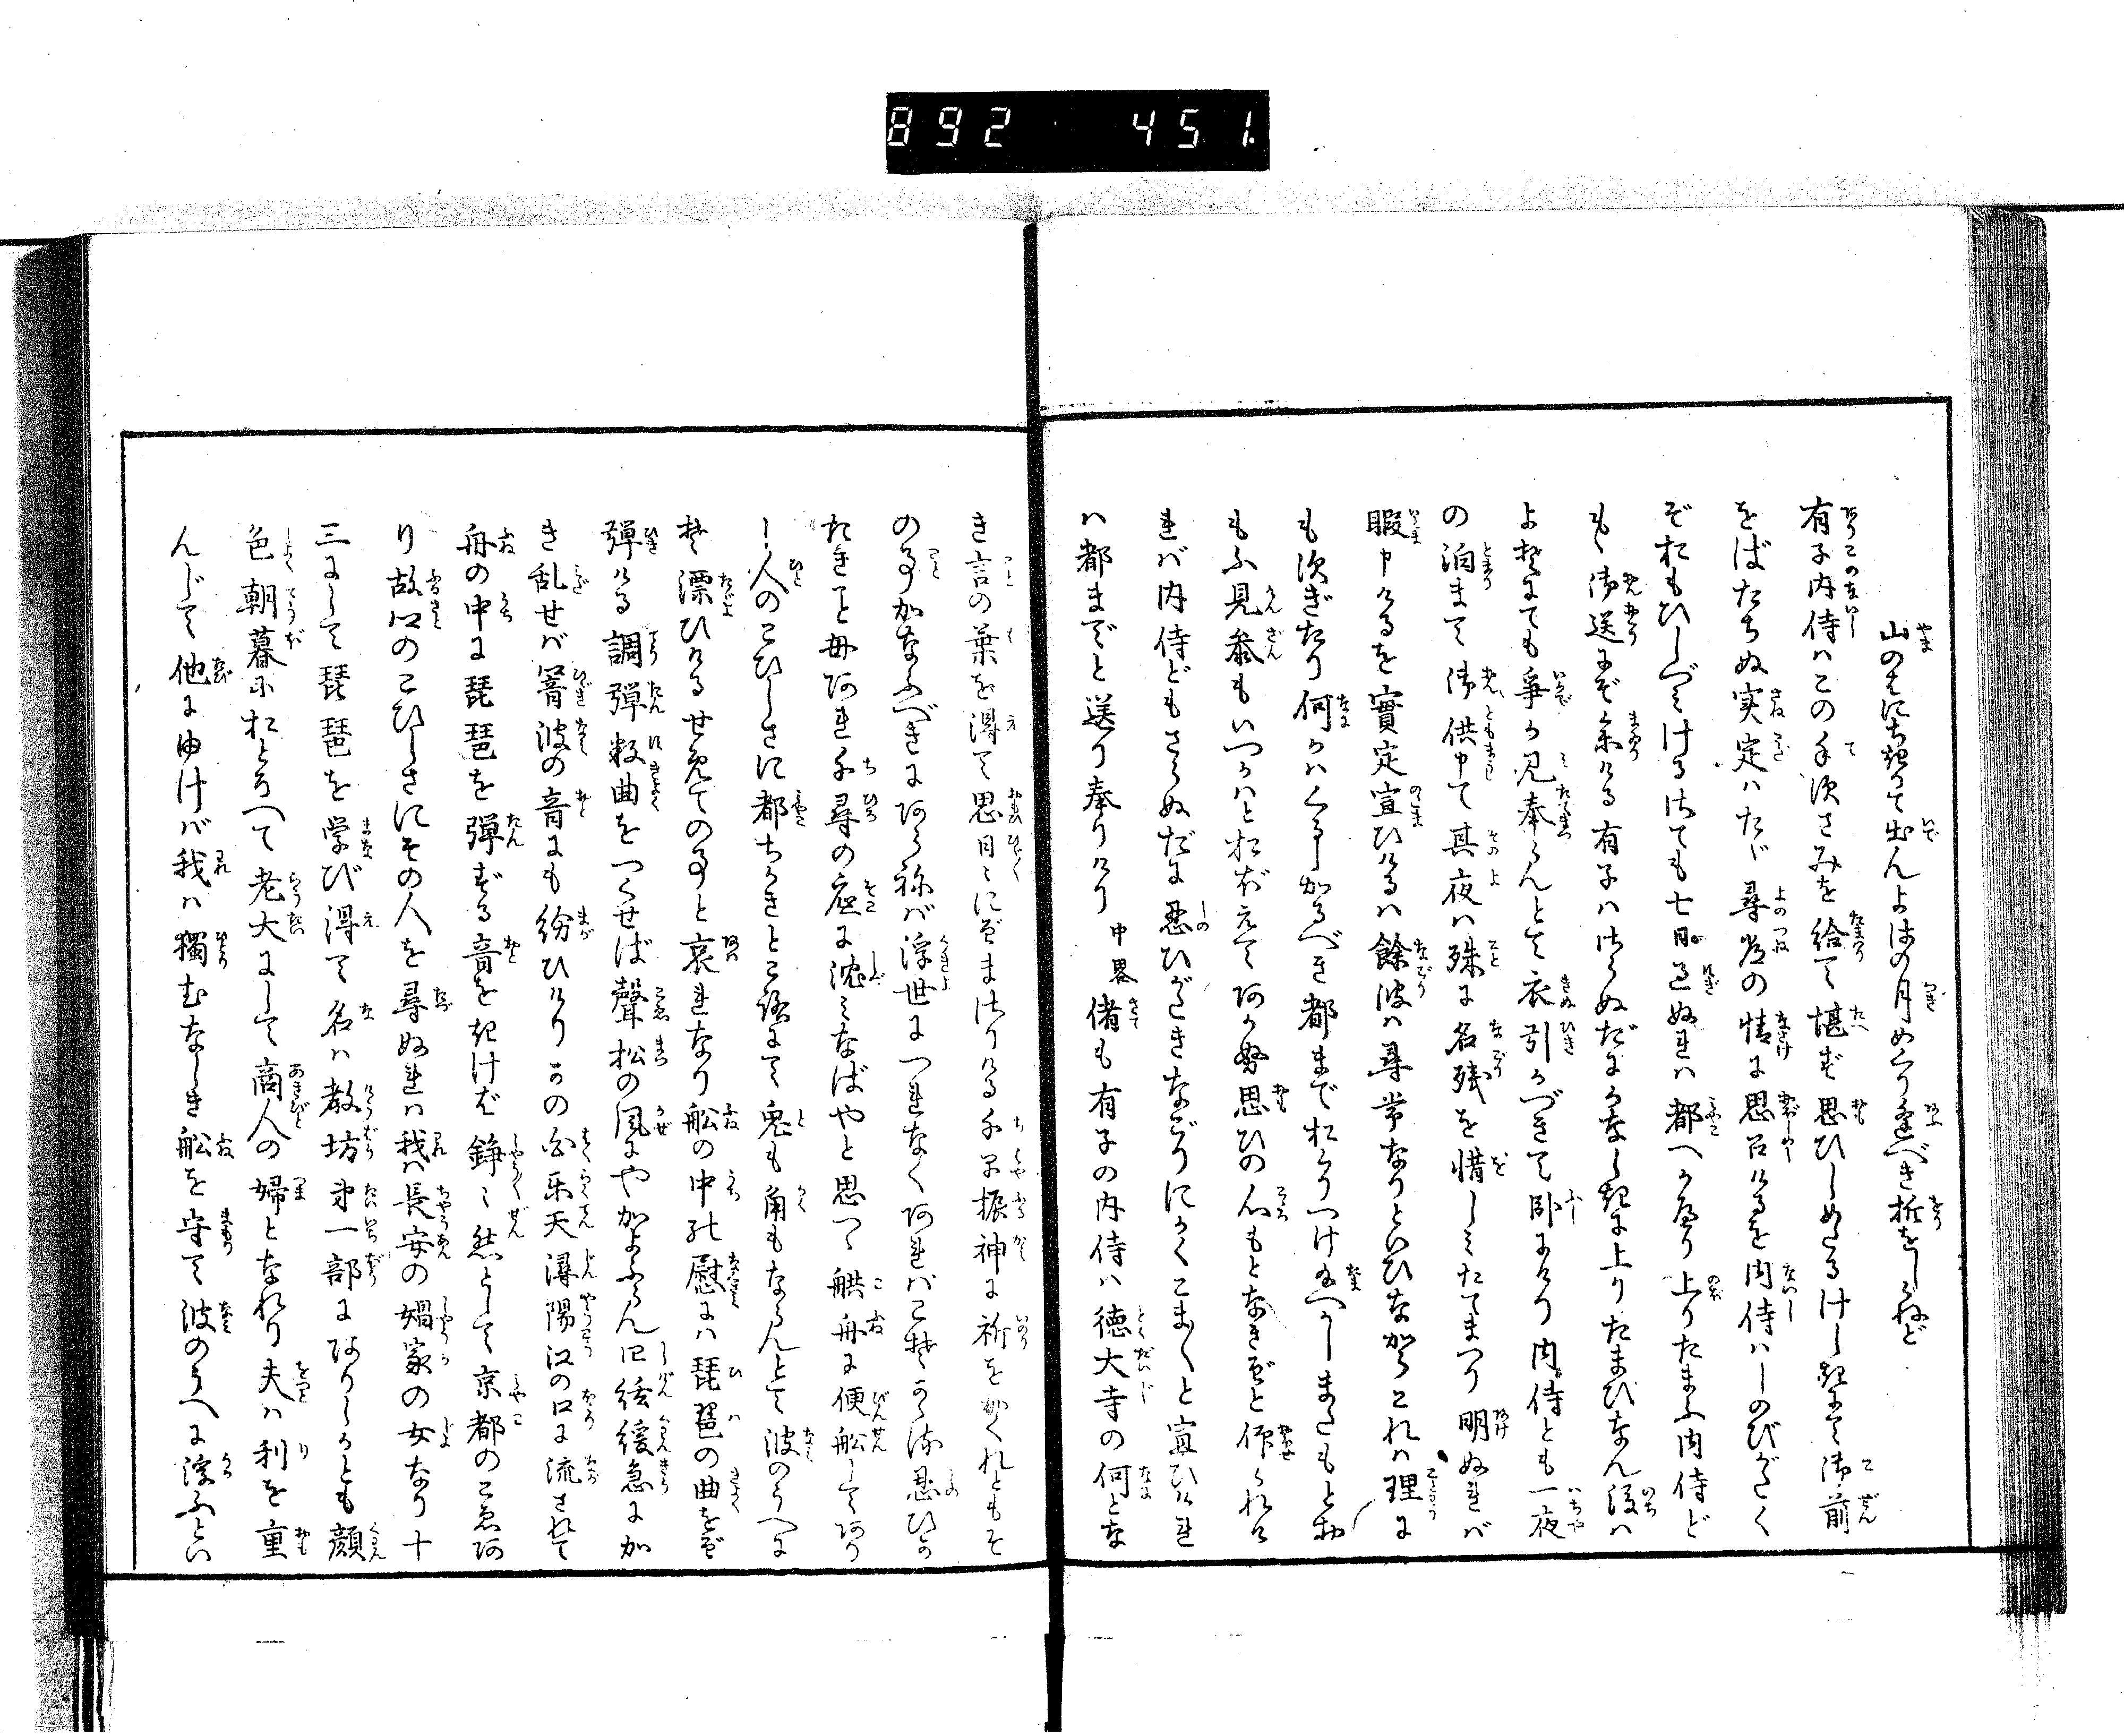 892 451
山のはにちぎりて出んよはの月めぐり逢べき折をしらねど
有子内侍ハこの手次さみを給て堪ず思ひしめたるけしきにて御前
をばたちぬ実定ハたゞ尋常の情に思召けるを内侍ハしのびがたく
ぞおもひしづミけるさても七日過ぬれハ都へかへり上りたまふ内侍ど
も御送にぞ参ける有子ハさらぬだにかなしきに上りたまひなん後ハ
よそにても争か見奉らんとて衣引かづきて臥にけり内侍とも一夜
の泊まて御供申て其夜ハ殊に名残を惜しミたてまつり明ぬれバ
暇申けるを實定宣ひけるハ餘波ハ尋常なりといひながらこれハ理に
も次ぎたり何かハくるしかるべき都まで おくりつけ給へかしまたもとお
もふ見参もいつかハとおぼえてあかぬ思ひの心もとなきぞと仰られけ
れバ内侍どもさらぬだに忍びがたきなごりにかくこまごまと宣ひけれ
ハ都までと送り奉りけり 中畧 偖も有子の内侍ハ徳大寺の何とな
き言の葉を得て思日々にぞまさりける千早振神に祈をかくれともそ
の事かなふべきにあらねバ浮世につれなくあれバこそかゝる忍びが
たきこと毋あれ千尋の底に沈ミなばやと思つゝ舼舟に便船してあり
し人のこひしさに都ちかきところにて兎も角もならんとて波のうへに
ぞ漂ひけるせめての事と哀れなり船の中の慰にハ琵琶の曲をぞ
弾ける調弾数曲をつくせば聲松の風にやかよふらん四絃緩急にか
き乱せバ響波の音にも紛ひけりかの白楽天潯陽江の口に流されて
舟の中に琵琶を弾ずる音をきけば錚々然として京都のこゑあ
り故江のこひしさにその人を尋ぬれハ我ハ長安の娼家の女なり十
三にして琵琶を学び得て名ハ教坊第一部にありしかとも顔
色朝暮におとろへて老大にして商人の婦となれり夫ハ利を重
んじて他にゆけバ我ハ獨むなしき船を守て波のうへに浮ふとい